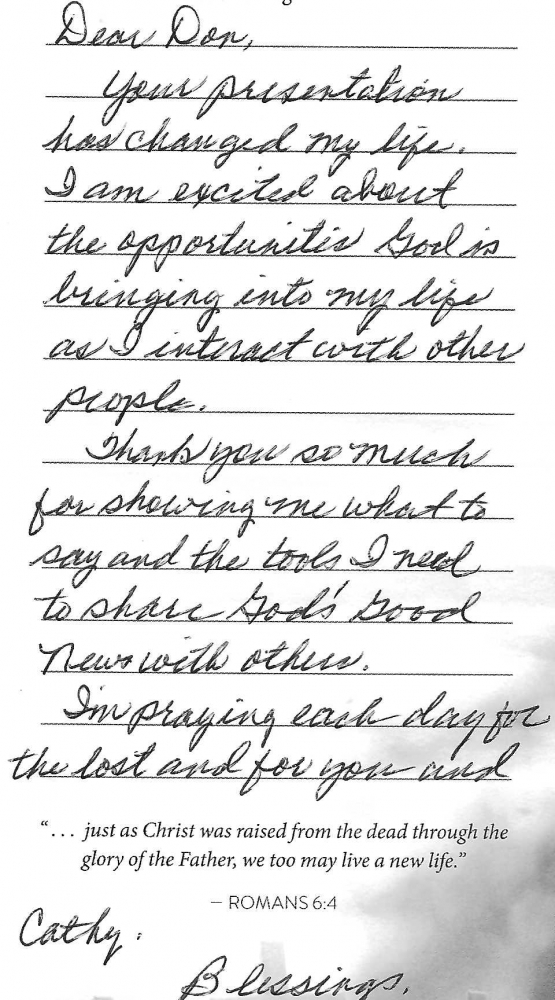 Dear Don,
Your presentation
has changed my life.
I am excited about
the opportunities God is
bringing into my life
as I interact with other
people.
Thank you so much
for showing me what to
say and the tools I need
to share God's Good
News with others.
I'm praying each day for
the lost and for you and
“... just as Christ was raised from the dead through the
glory of the Father, we too may live a new life.”
– ROMANS 6:4
Cathy.
Blessings,